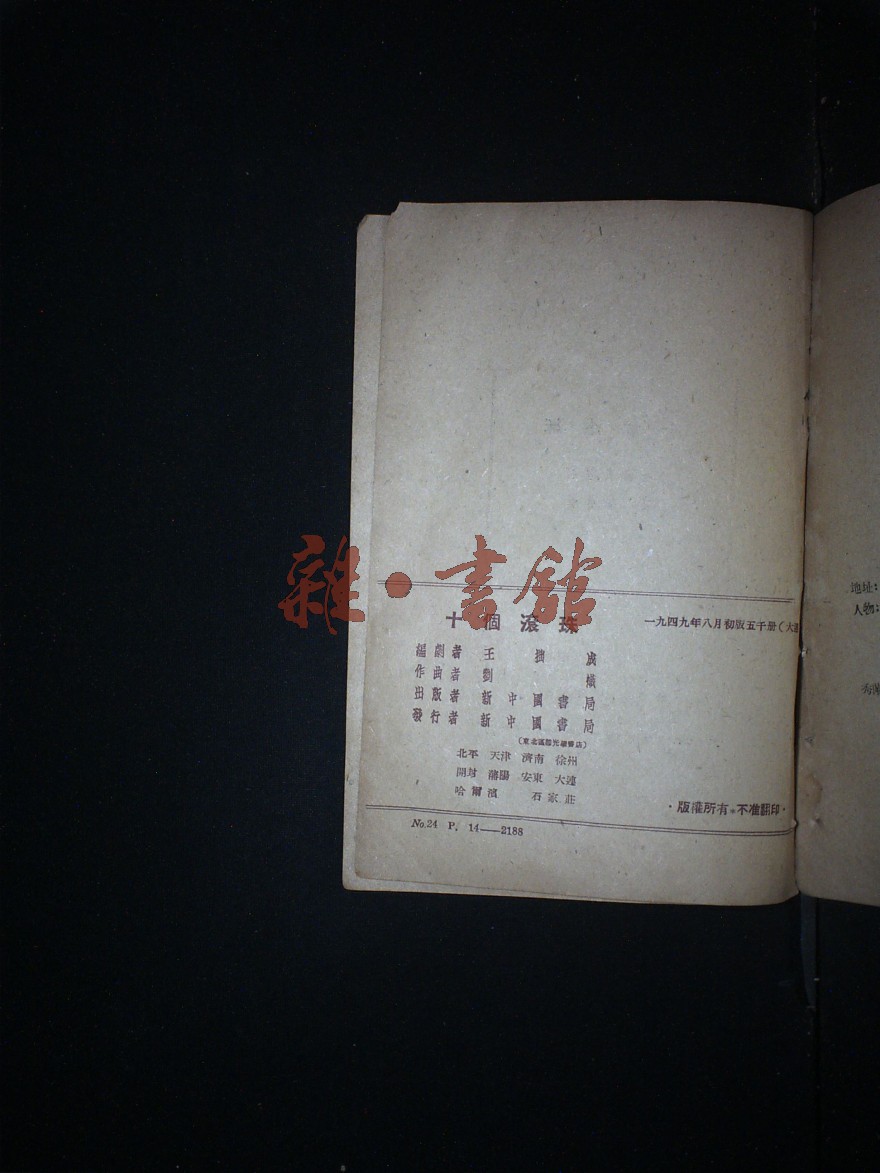 雜·書館
十個滾珠
一九四九年八月初版五千册(大連
編劇者 王拙成
作曲者 劉熾
出版者 新中國書局
發行者 新中國書局
(東北區總光華書店)
北平 天津 濟南 徐州
開封 瀋陽 安東 大連
哈爾濱 石家莊
·版權所有·不准翻印·
No.24 P. 14——2188
地址:
人物: